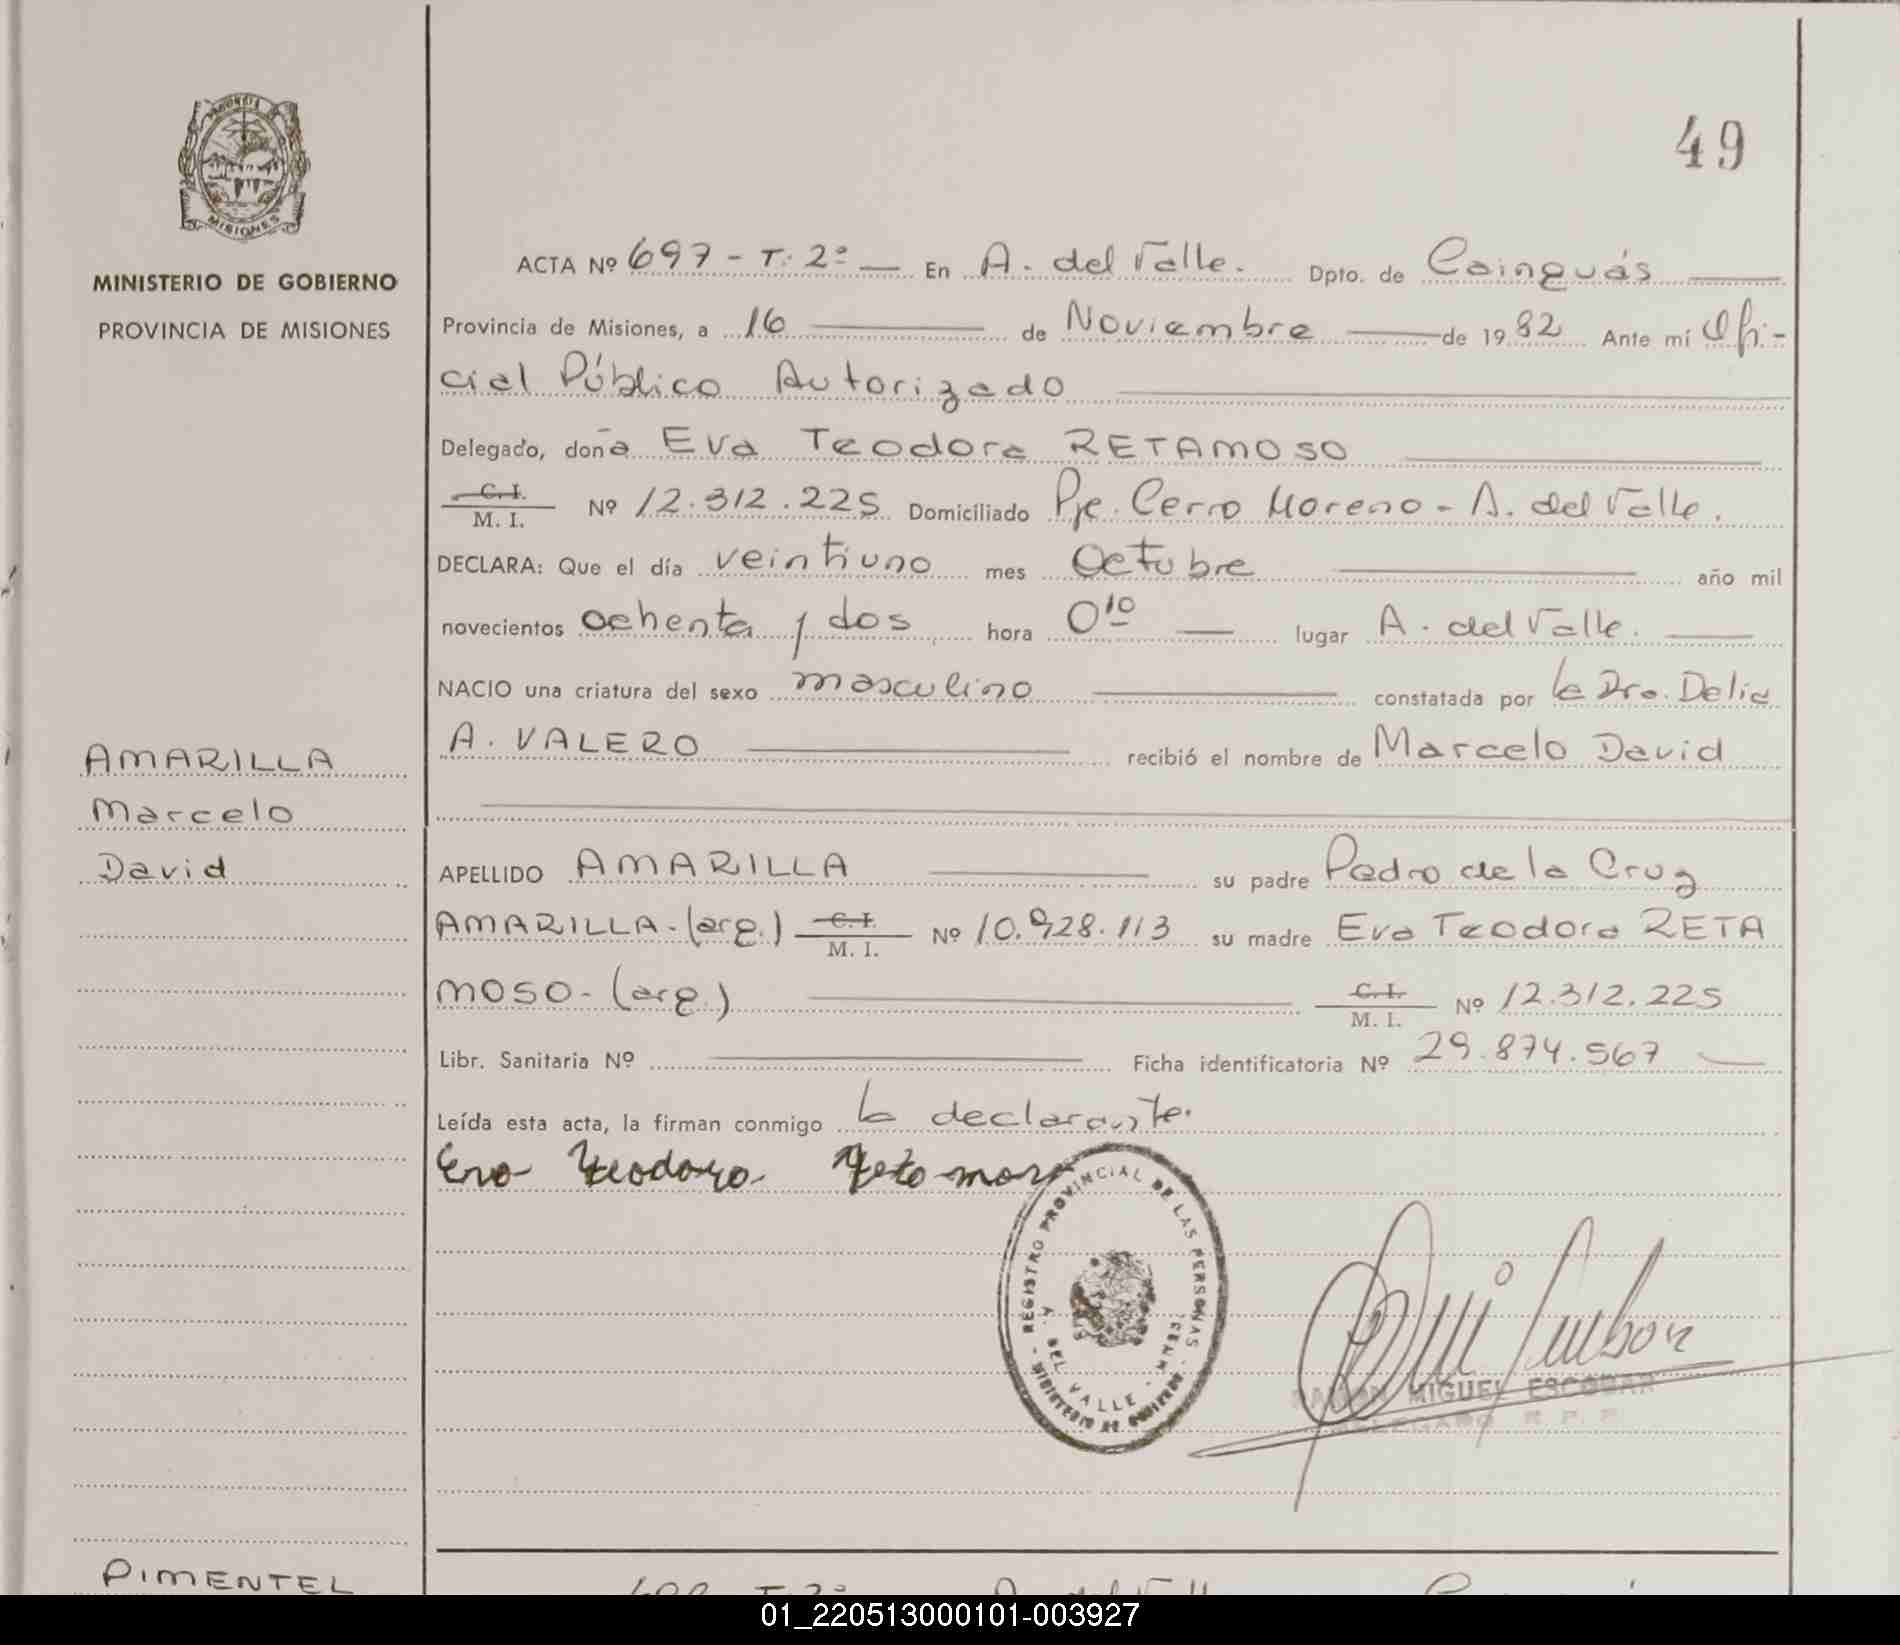 49
PROVINCIA DE
MISIONES
MINISTERIO DE GOBIERNO
PROVINCIA DE MISIONES
ACTA Nº 697 - T. 2º — En A. del Valle. Dpto. de Cainguás
Provincia de Misiones, a 16 de Noviembre de 1982 Ante mí Ofi-
cial Público Autorizado
Delegado, doña Eva Teodora RETAMOSO
C. I.
M. I. Nº 12.312.225 Domiciliado Pje. Cerro Moreno - A. del Valle.
DECLARA: Que el día veintiuno mes Octubre año mil
novecientos ochenta y dos hora 0¹⁰ lugar A. del Valle.
NACIO una criatura del sexo masculino constatada por la Dra. Delia
A. VALERO recibió el nombre de Marcelo David
AMARILLA
Marcelo
David
APELLIDO AMARILLA su padre Pedro de la Cruz
AMARILLA - (arg.) C. I.
M. I. Nº 10.928.113 su madre Eva Teodora RETA
MOSO - (arg.) C. I.
M. I. Nº 12.312.225
Libr. Sanitaria Nº Ficha identificatoria Nº 29.874.567
Leída esta acta, la firman conmigo la declarante.
Eva Teodora Retamos
REGISTRO PROVINCIAL DE LAS PERSONAS
A. DEL VALLE - MNES.
MINISTERIO DE GOBIERNO
RAMON MIGUEL ESCOBAR
DELEGADO R. P. P.
PIMENTEL
01_220513000101-003927